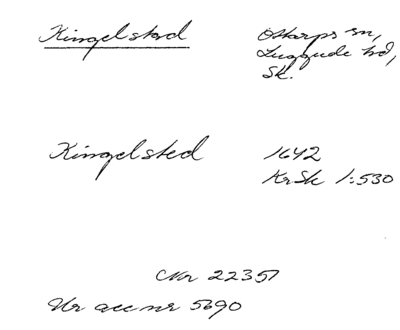 Kingelstad Ottarps sn,
Luggude hd,
Sk.
Kingelsted 1642
KrSk 1:530
Nr 22351
Ur acc nr 5690